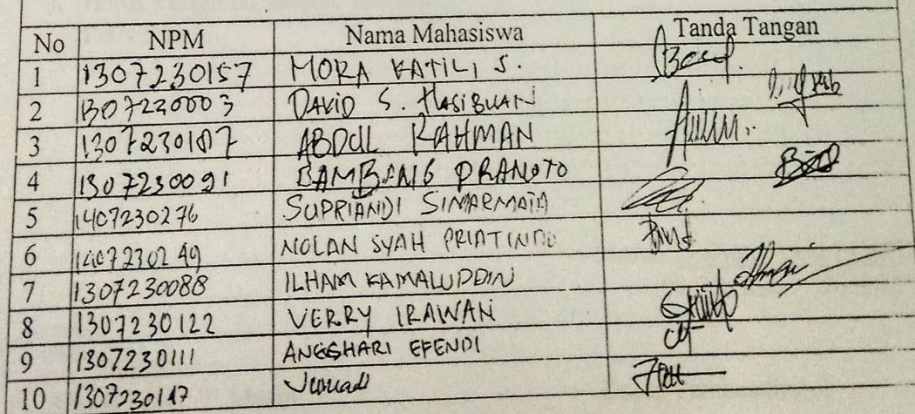 No NPM Nama Mahasiswa Tanda Tangan
1 1307230157 MORA KATILI S.
2 1307230003 DAVID S. HASIBUAN
3 1307230187 ABDUL RAHMAN
4 1307230091 BAMBANG PRANOTO
5 1407230276 SUPRIANDI SIMARMATA
6 1407230249 NOLAN SYAH PRIATINDO
7 1307230088 ILHAM KAMALUDDIN
8 1307230122 VERRY IRAWAN
9 1307230111 ANGGHARI EFENDI
10 1307230147 Junuadi